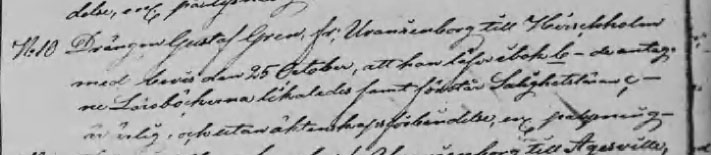 delse, ex
No 10 Drängen Gustaf Gren, fr. Uranienborg till Hirschholm
med bevis den 25 October, att han läser i bok b – de antag-
ne Läroböckerna likaledes samt förstår Salighetsläran c –
är ärlig, och utan äktenskapsförbindelse, ex
till Agesville,